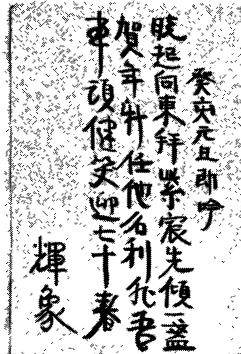 癸亥元旦即吟
晓起向東拜紫宸先傾三盞
賀年新任他名利非吾
事頑健笑迎七十春
輝象